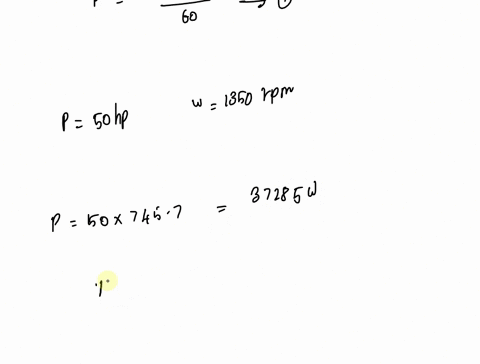 P =
60
P = 50hp w = 1350 rpm
P = 50 × 745.7 = 37285 W